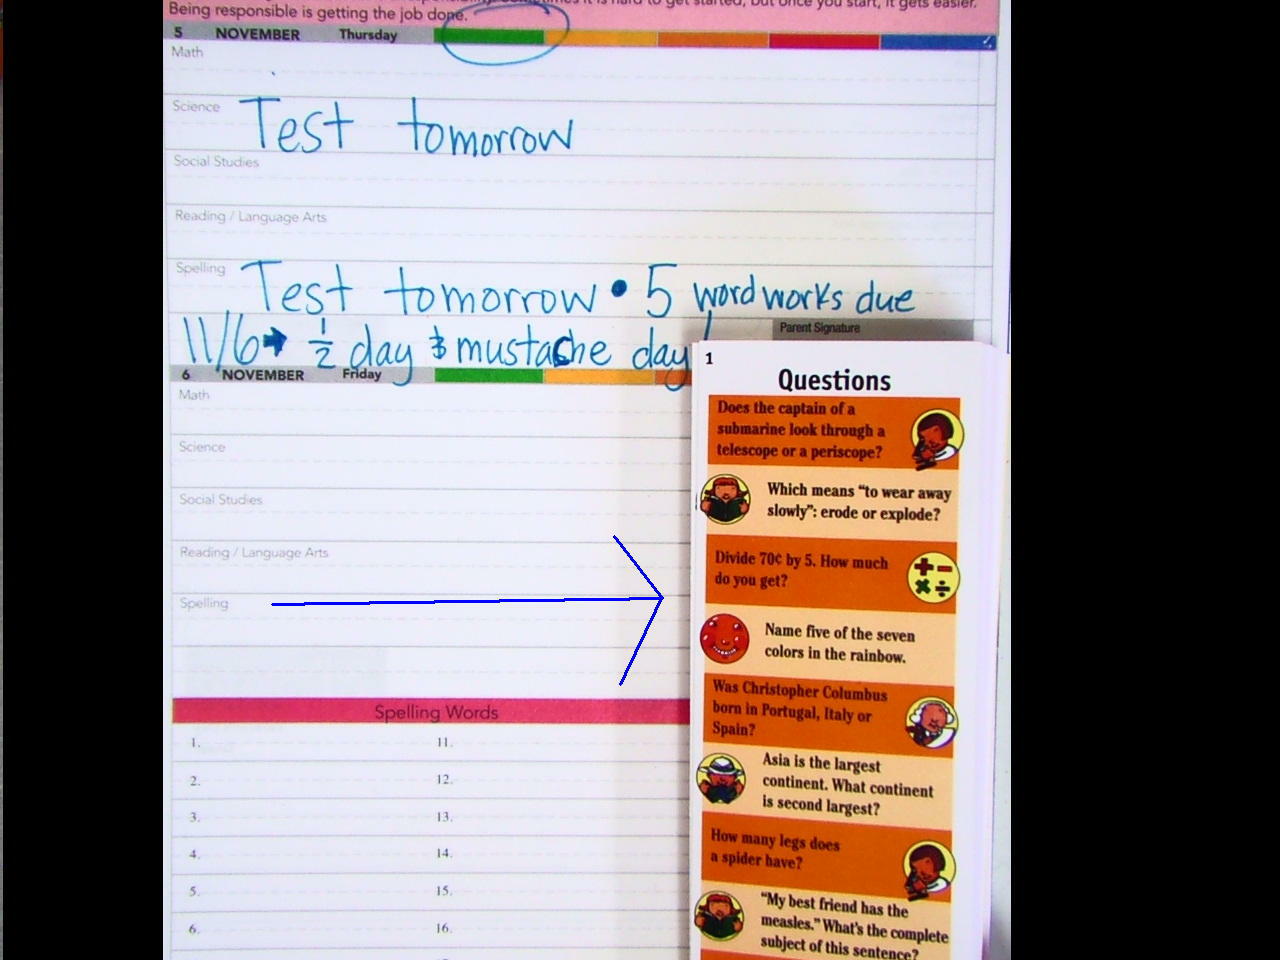 Being responsible is getting the job done.
5 NOVEMBER Thursday
Math
Science Test tomorrow
Social Studies
Reading / Language Arts
Spelling Test tomorrow • 5 wordworks due
11/6 → 1/2 day & mustache day
Parent Signature
6 NOVEMBER Friday
Math
Science
Social Studies
Reading / Language Arts
Spelling
Spelling Words
1. 11.
2. 12.
3. 13.
4. 14.
5. 15.
6. 16.
1
Questions
Does the captain of a
submarine look through a
telescope or a periscope?
Which means “to wear away
slowly”: erode or explode?
Divide 70¢ by 5. How much
do you get?
Name five of the seven
colors in the rainbow.
Was Christopher Columbus
born in Portugal, Italy or
Spain?
Asia is the largest
continent. What continent
is second largest?
How many legs does
a spider have?
“My best friend has the
measles.” What's the complete
subject of this sentence?